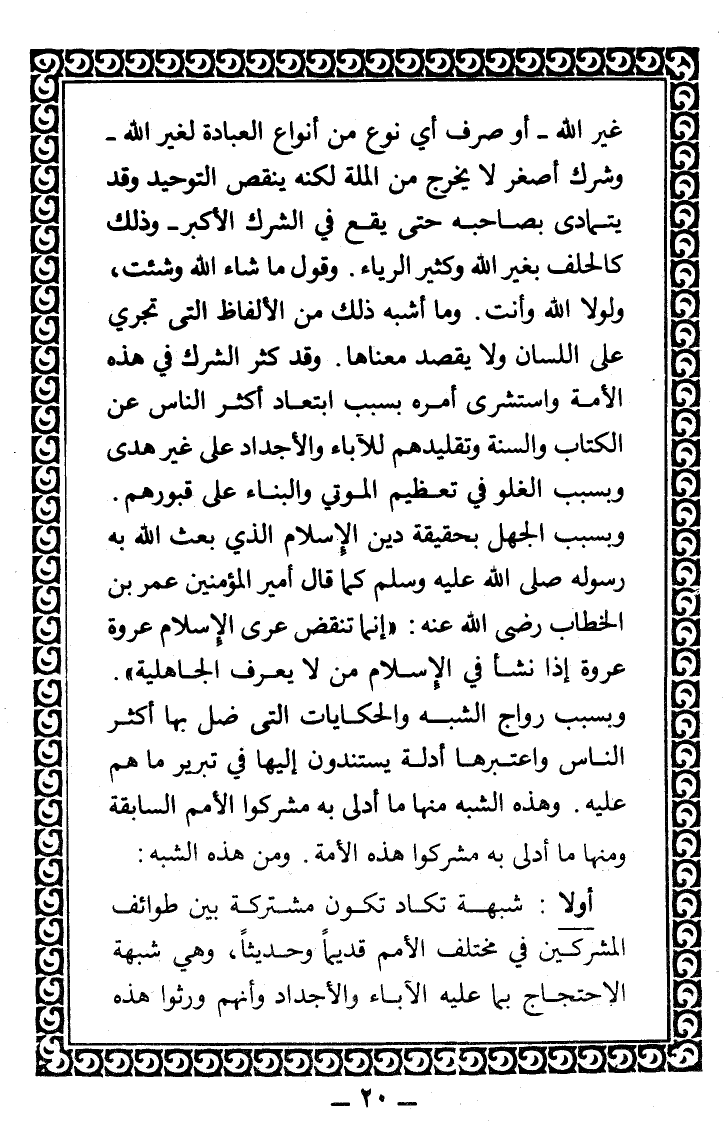 غير الله ـ أو صرف أي نوع من أنواع العبادة لغير الله ـ
وشرك أصغر لا يخرج من الملة لكنه ينقص التوحيد وقد
يتمادى بصاحبه حتى يقع في الشرك الأكبر ـ وذلك
كالحلف بغير الله وكثير الرياء. وقول ما شاء الله وشئت،
ولولا الله وأنت. وما أشبه ذلك من الألفاظ التى تجري
على اللسان ولا يقصد معناها. وقد كثر الشرك في هذه
الأمة واستشرى أمره بسبب ابتعاد أكثر الناس عن
الكتاب والسنة وتقليدهم للآباء والأجداد على غير هدى
وبسبب الغلو في تعظيم الموتي والبناء على قبورهم.
وبسبب الجهل بحقيقة دين الإسلام الذي بعث الله به
رسوله صلى الله عليه وسلم كما قال أمير المؤمنين عمر بن
الخطاب رضى الله عنه: «إنما تنقض عرى الإسلام عروة
عروة إذا نشأ في الإسلام من لا يعرف الجاهلية».
وبسبب رواج الشبه والحكايات التى ضل بها أكثر
الناس واعتبرها أدلة يستندون إليها في تبرير ما هم
عليه. وهذه الشبه منها ما أدلى به مشركوا الأمم السابقة
ومنها ما أدلى به مشركوا هذه الأمة. ومن هذه الشبه:
أولا: شبهة تكاد تكون مشتركة بين طوائف
المشركين في مختلف الأمم قديماً وحديثاً، وهي شبهة
الاحتجاج بما عليه الآباء والأجداد وأنهم ورثوا هذه
ـ ٢٠ ـ